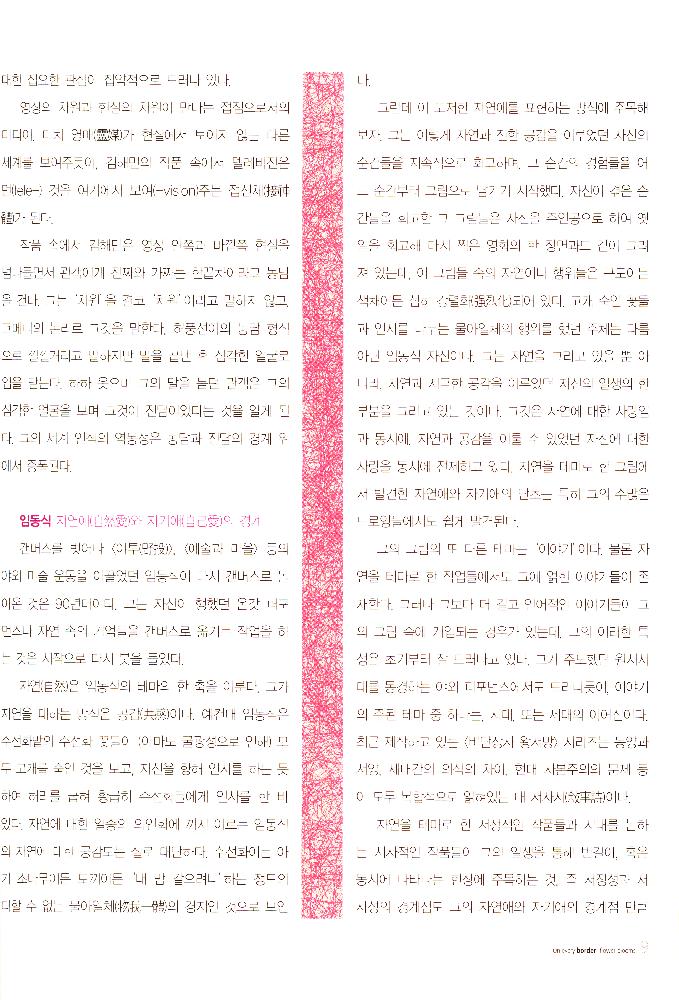 대한 집요한 관심이 집약적으로 드러나 있다.
영상의 차원과 현실의 차원이 만나는 접점으로서의
미디어. 마치 영매(靈媒)가 현실에서 보이지 않는 다른
세계를 보여주듯이, 김해민의 작품 속에서 텔레비전은
먼(tele-) 것을 여기에서 보여(-vision)주는 접신체(接神
體)가 된다.
작품 속에서 김해민은 영상 안쪽과 바깥쪽 현실을
넘나들면서 관객에게 진짜와 가짜는 한끝차이라고 농담
을 건다. 그는 '차원'을 결코 '차원'이라고 말하지 않고,
그만의 논리로 그것을 말한다. 허풍선이의 농담 형식
으로 낄낄거리고 말하지만 말을 끝낸 후 심각한 얼굴로
입을 닫는다. 하하 웃으며 그의 말을 듣던 관객은 그의
심각한 얼굴을 보며 그것이 진담이었다는 것을 알게 된
다. 그의 세계 인식의 역동성은 농담과 진담의 경계 위
에서 증폭된다.
임동식 자연애(自然愛)와 자기애(自己愛)의 경계
캔버스를 벗어나 〈야투(野投)〉, 〈예술과 마을〉 등의
야외 미술 운동을 이끌었던 임동식이 다시 캔버스로 돌
아온 것은 90년대이다. 그는 자신이 행했던 온갖 퍼포
먼스나 자연 속의 기억들을 캔버스로 옮기는 작업을 하
는 것을 시작으로 다시 붓을 들었다.
자연(自然)은 임동식의 테마의 한 축을 이룬다. 그가
자연을 대하는 방식은 공감(共感)이다. 예컨대 임동식은
수선화밭의 수선화 꽃들이 (아마도 굴광성으로 인해) 모
두 고개를 숙인 것을 보고, 자신을 향해 인사를 하는 듯
하여 허리를 굽혀 황급히 수선화들에게 인사를 한 바
있다. 자연에 대한 일종의 의인화에 까지 이르는 임동식
의 자연에 대한 공감도는 실로 대단하다. 수선화이든 아
기 소나무이든 토끼이든 '내 맘 같으려니' 하는 정도의
더할 수 없는 물아일체(物我一體)의 경지인 것으로 보인
다.
그런데 이 도저한 자연애를 표현하는 방식에 주목해
보자. 그는 이렇게 자연과 진한 공감을 이루었던 자신의
순간들을 지속적으로 회고하며, 그 순간의 경험들을 어
느 순간부터 그림으로 남기기 시작했다. 자신이 겪은 순
간들을 회고한 그 그림들은 자신을 주인공으로 하여 옛
일을 회고해 다시 찍은 영화의 한 장면과도 같이 그려
져 있는데, 이 그림들 속의 자연이나 행위들은 구도이든
색채이든 심히 강렬화(强烈化)되어 있다. 고개 숙인 꽃들
과 인사를 나누는 물아일체의 행위를 했던 주체는 다름
아닌 임동식 자신이다. 그는 자연을 그리고 있을 뿐 아
니라, 자연과 지극한 공감을 이루었던 자신의 일생의 한
부분을 그리고 있는 것이다. 그것은 자연에 대한 사랑임
과 동시에, 자연과 공감을 이룰 수 있었던 자신에 대한
사랑을 동시에 전제하고 있다. 자연을 테마로 한 그림에
서 발견한 자연애와 자기애의 단초는 특히 그의 수많은
드로잉들에서도 쉽게 발견된다.
그의 그림의 또 다른 테마는 '이야기'이다. 물론 자
연을 테마로 한 작업들에서도 그에 얽힌 이야기들이 존
재한다. 그러나 그보다 더 길고 언어적인 이야기들이 그
의 그림 속에 개입되는 경우가 있는데, 그의 이러한 특
성은 초기부터 잘 드러나고 있다. 그가 주도했던 원시시
대를 동경하는 야외 퍼포먼스에서도 드러나듯이, 이야기
의 주된 테마 중 하나는, 시대, 또는 세대의 이어짐이다.
최근 제작하고 있는 〈비단장사 왕서방〉 시리즈는 동양과
서양, 세대간의 의식의 차이, 현대 자본주의의 문제 등
이 모두 복합적으로 얽혀있는 대 서사시(敍事詩)이다.
자연을 테마로 한 서정적인 작품들과 시대를 논하
는 서사적인 작품들이 그의 일생을 통해 번갈아, 혹은
동시에 나타나는 현상에 주목하는 것, 즉 서정성과 서
사성의 경계점도 그의 자연애와 자기애의 경계점 만큼
on every border, flower blooms 9